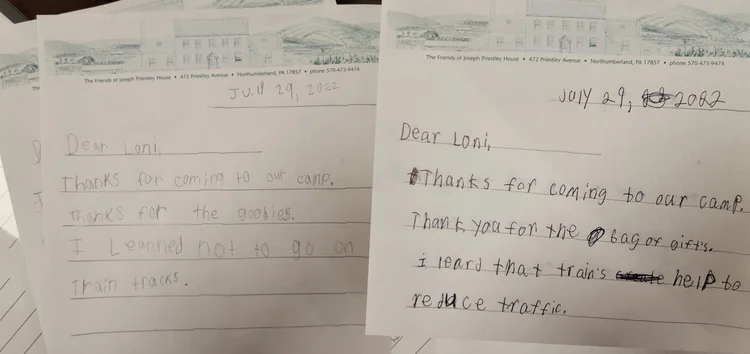 The Friends of Joseph Priestley House • 472 Priestley Avenue • Northumberland, PA 17857 • phone 570-473-9474
JUly 29, 2022
Dear Loni,
Thanks for coming to our camp.
Thanks for the goodies.
I Leanned not to go on
Train tracks.
The Friends of Joseph Priestley House • 472 Priestley Avenue • Northumberland, PA 17857 • phone 570-473-9474
JUlY 29, 2022
Dear Loni,
Thanks for coming to our camp.
Thank you for the bag of gift's.
i leard that train's help to
reduce traffic.